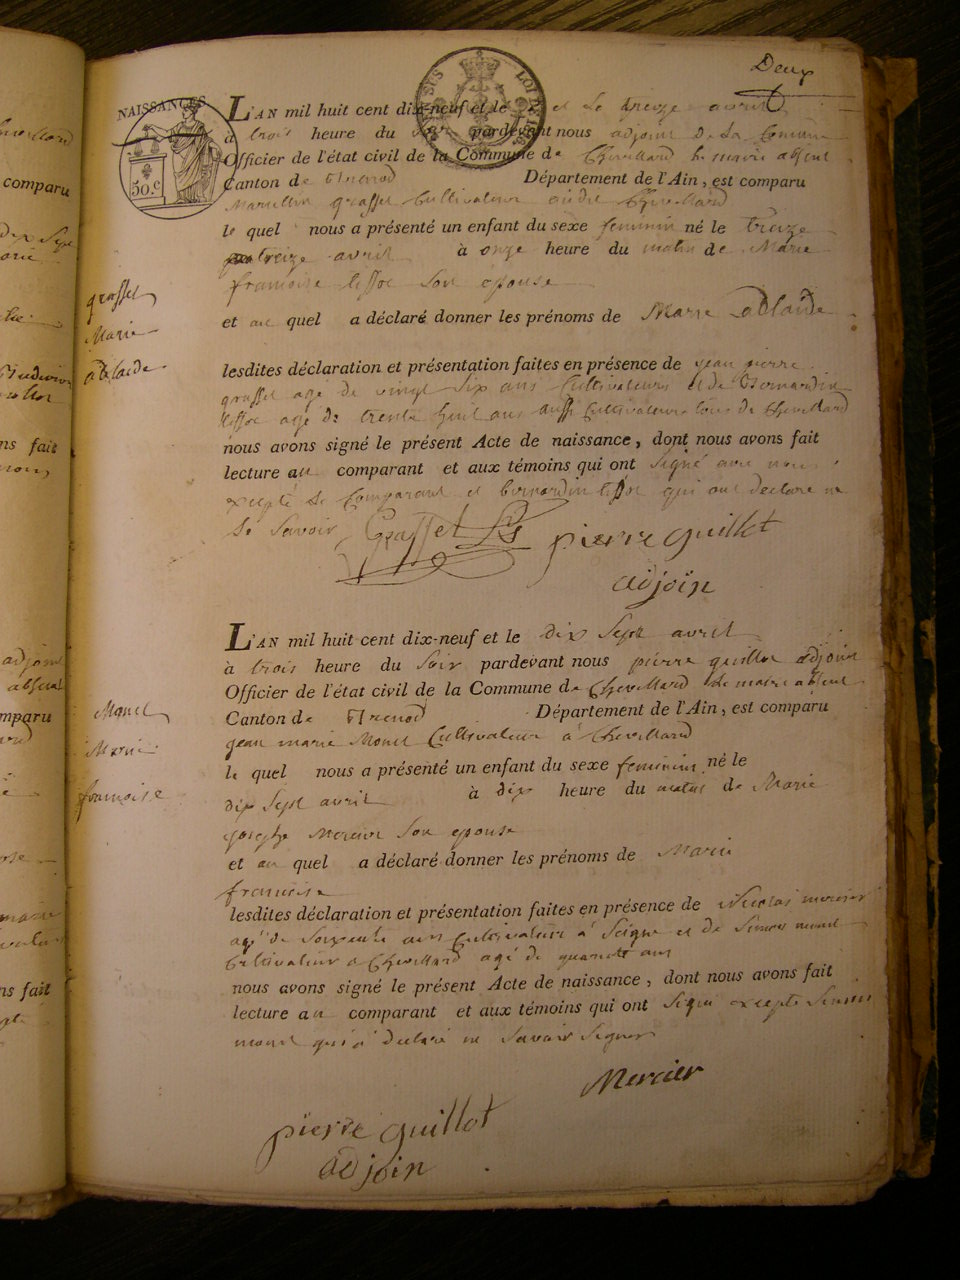 Deux
NAISSANCES
50.c
L'AN mil huit cent dix-neuf et le treize avril
à trois heure du soir pardevant nous adjoint de la Commune
Officier de l'état civil de la Commune de Chevillard le maire absent
Canton de Brenod Département de l'Ain, est comparu
grasset Cultivateur Chevillard
le quel nous a présenté un enfant du sexe feminin né le treize
treize avril à onze heure du matin de Marie
francoise tissot son epouse
grasset
Marie
adelaide
et au quel a déclaré donner les prénoms de Marie adelaide
lesdites déclaration et présentation faites en présence de jean pierre
grasset agé de vingt six ans Cultivateurs et de Bernardin
tissot agé de trente huit ans aussi Cultivateur tous de Chevillard
nous avons signé le présent Acte de naissance, dont nous avons fait
lecture au comparant et aux témoins qui ont signé avec nous
excepté le Comparant et bernardin tissot qui ont declaré ne
le savoir Grasset pierre guillot
adjoin
L'AN mil huit cent dix-neuf et le dix sept avril
à trois heure du soir pardevant nous pierre guillot adjoint
Officier de l'état civil de la Commune de Chevillard le maire absent
Canton de Brenod Département de l'Ain, est comparu
jean marie Monet Cultivateur à Chevillard
le quel nous a présenté un enfant du sexe feminin né le
dix sept avril à dix heure du matin de Marie
josephe Mercier son epouse
Monet
Marie
francoise
et au quel a déclaré donner les prénoms de Marie
francoise
lesdites déclaration et présentation faites en présence de Nicolas mercier
agé de soixante ans Cultivateur à et de Simon monet
Cultivateur a Chevillard agé de quarante ans
nous avons signé le présent Acte de naissance, dont nous avons fait
lecture au comparant et aux témoins qui ont signé excepté Simon
monet qui a declaré ne savoir signer
Mercier
pierre guillot
adjoin